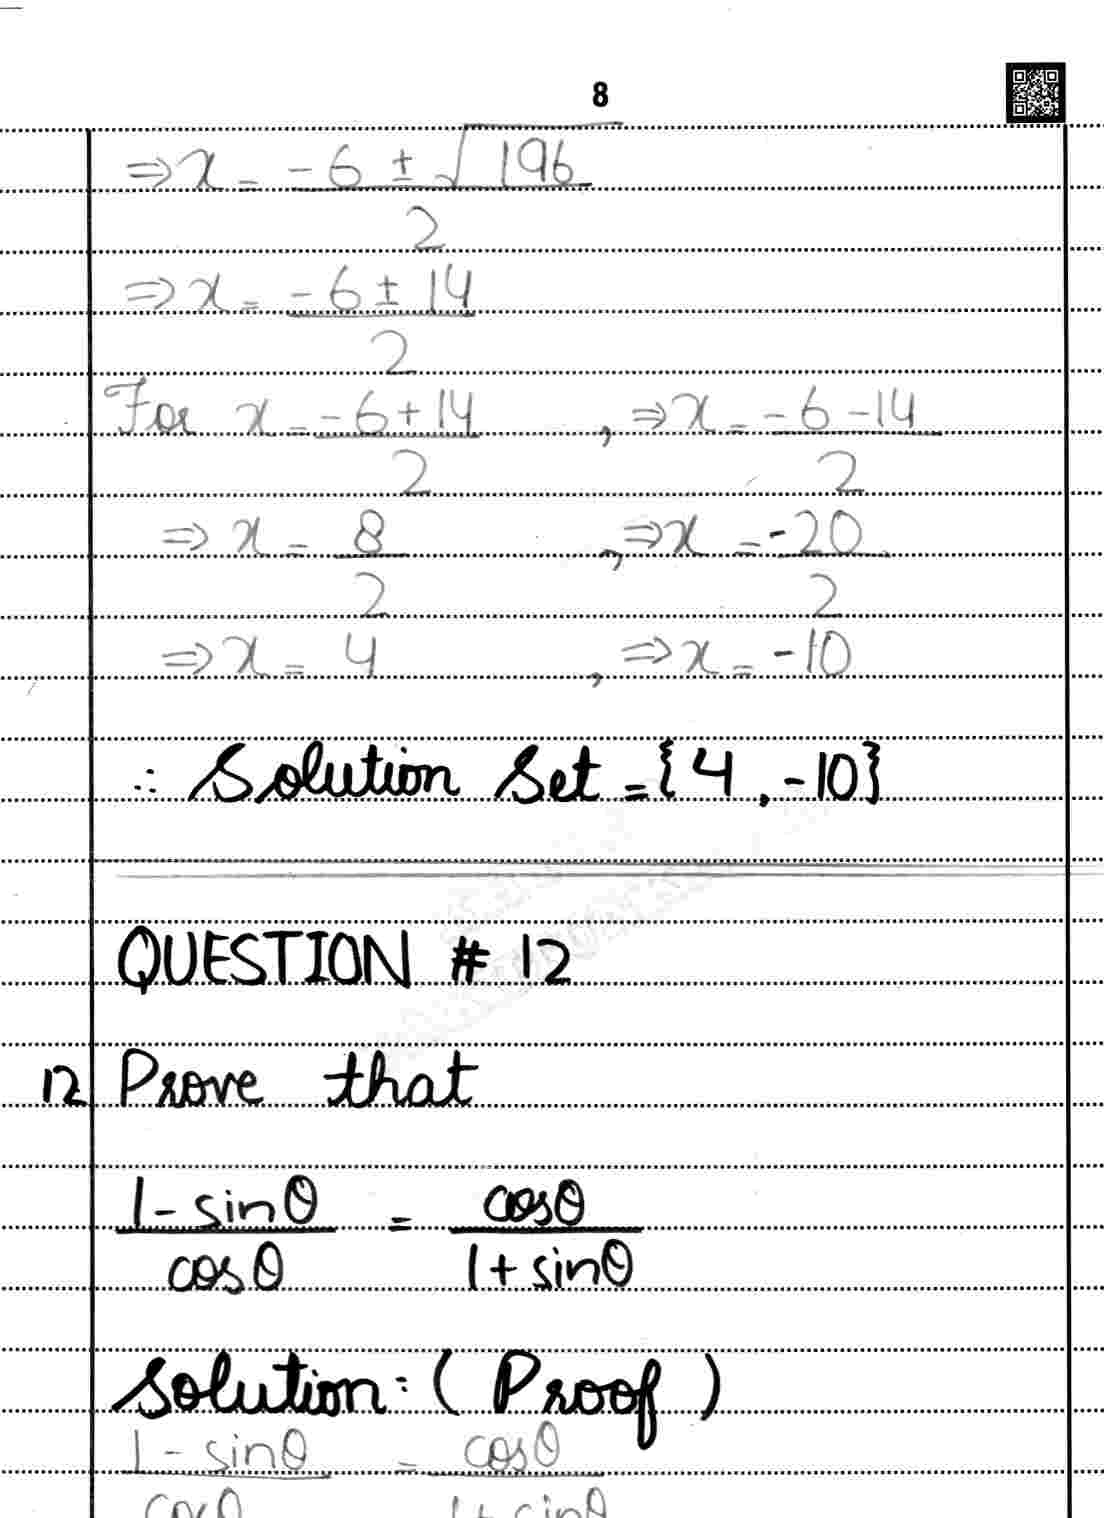 8
⇒x = -6 ± √196
2
⇒x = -6 ± 14
2
For x = -6+14 , ⇒x = -6-14
2 2
⇒x = 8 , ⇒x = -20
2 2
⇒x = 4 , ⇒x = -10
∴ Solution Set = {4, -10}
QUESTION # 12
12 Prove that
1 - sinθ = cosθ
cosθ 1 + sinθ
Solution: (Proof)
1 - sinθ = cosθ
cosθ 1 + sinθ